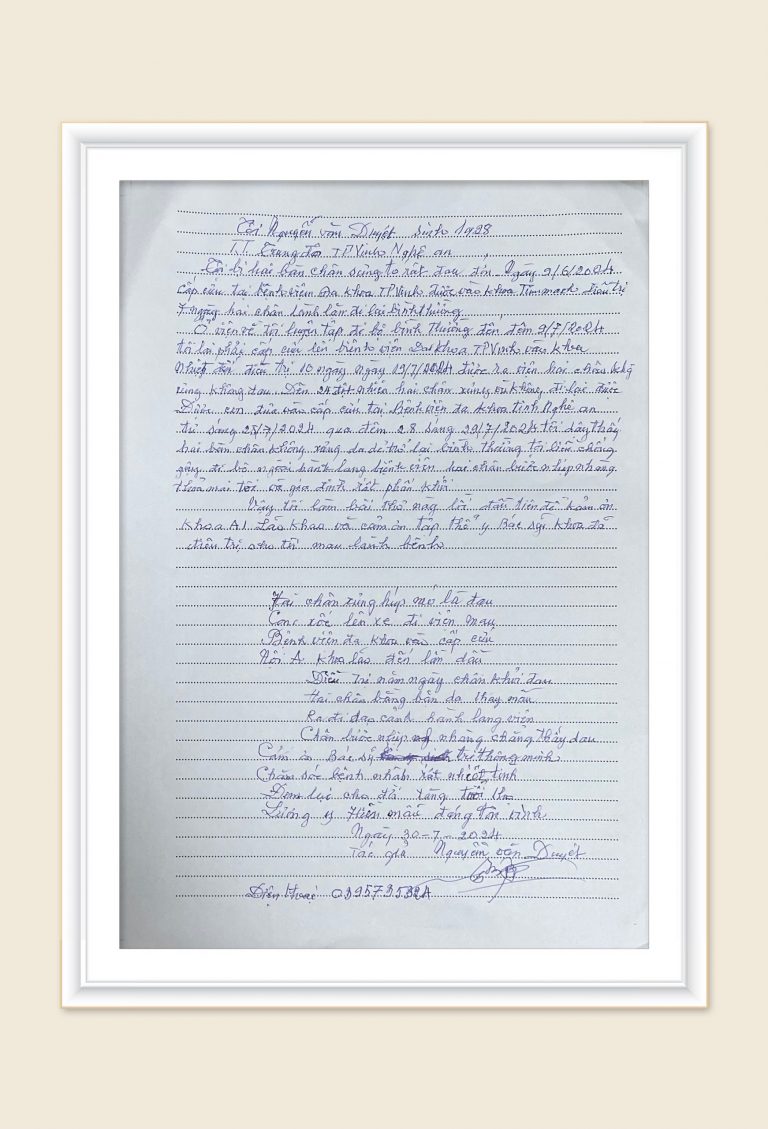 Tôi Nguyễn văn Duyệt sinh 1928
T.T. Trung đô TP Vinh Nghệ an
Tôi bị hai bàn chân sưng to rất đau đớn. Ngày 2/6/2024
Cấp cứu tại bênh viên Đa khoa TP Vinh được vào khoa Tim mạch điều trị
7 ngày hai chân lành lặn đi lại bình thường
Ở viên về tôi luyện tập đi bộ bình thường đến đêm 9/7/2024
tôi lai phải cấp cứu lên biênh viên Đa khoa TP Vinh vào khoa
Nhiệt đới điều trị 10 ngày ngày 19/7/2024 được ra viên hai chân không
sưng không đau. Đến 24 đột nhiên hai chân xưng vù không đi lại được
Được con đưa vào cấp cứu tại Bênh viện đa khoa tỉnh Nghệ an
từ sáng 25/7/2024 qua đêm 28 sang 29/7/2024 tôi dây thấy
hai bàn chân không xưng da dẻ trở lai bình thường tôi liền chống
gậy đi bộ ngoài hành lang biênh viên hai chân bước nhịp nhàng
thoải mái tôi và gia đình rất phấn khởi
Vậy tôi làm bài thơ này lời đầu tiên để cảm ơn
khoa A1 Lão khoa và cảm ơn tập thể y Bác sỹ khoa đã
điêu trị cho tôi mau lành bênh
Hai chân xưng húp mó là đau
Con xốc lên xe đi viên mau
Bênh viên đa khoa vào cấp cứu
Nội A khoa lão đến lần đầu
Điều trị năm ngày chân khỏi đau
Hai chân bằng bàn da thay mầu
Ra đi dạo cảnh hành lang viên
Chân bước nhịp nhàng chẳng thấy đau
Cám ơn Bác sỹ trí thông minh
Chăm sóc bênh nhân rất nhiêt tình
Đem lại cho đời tăng tuổi thọ
Lương y Hiền mẫu đáng tôn vinh
Ngày 30-7-2024
Tác giả Nguyễn văn Duyệt
Điện thoại